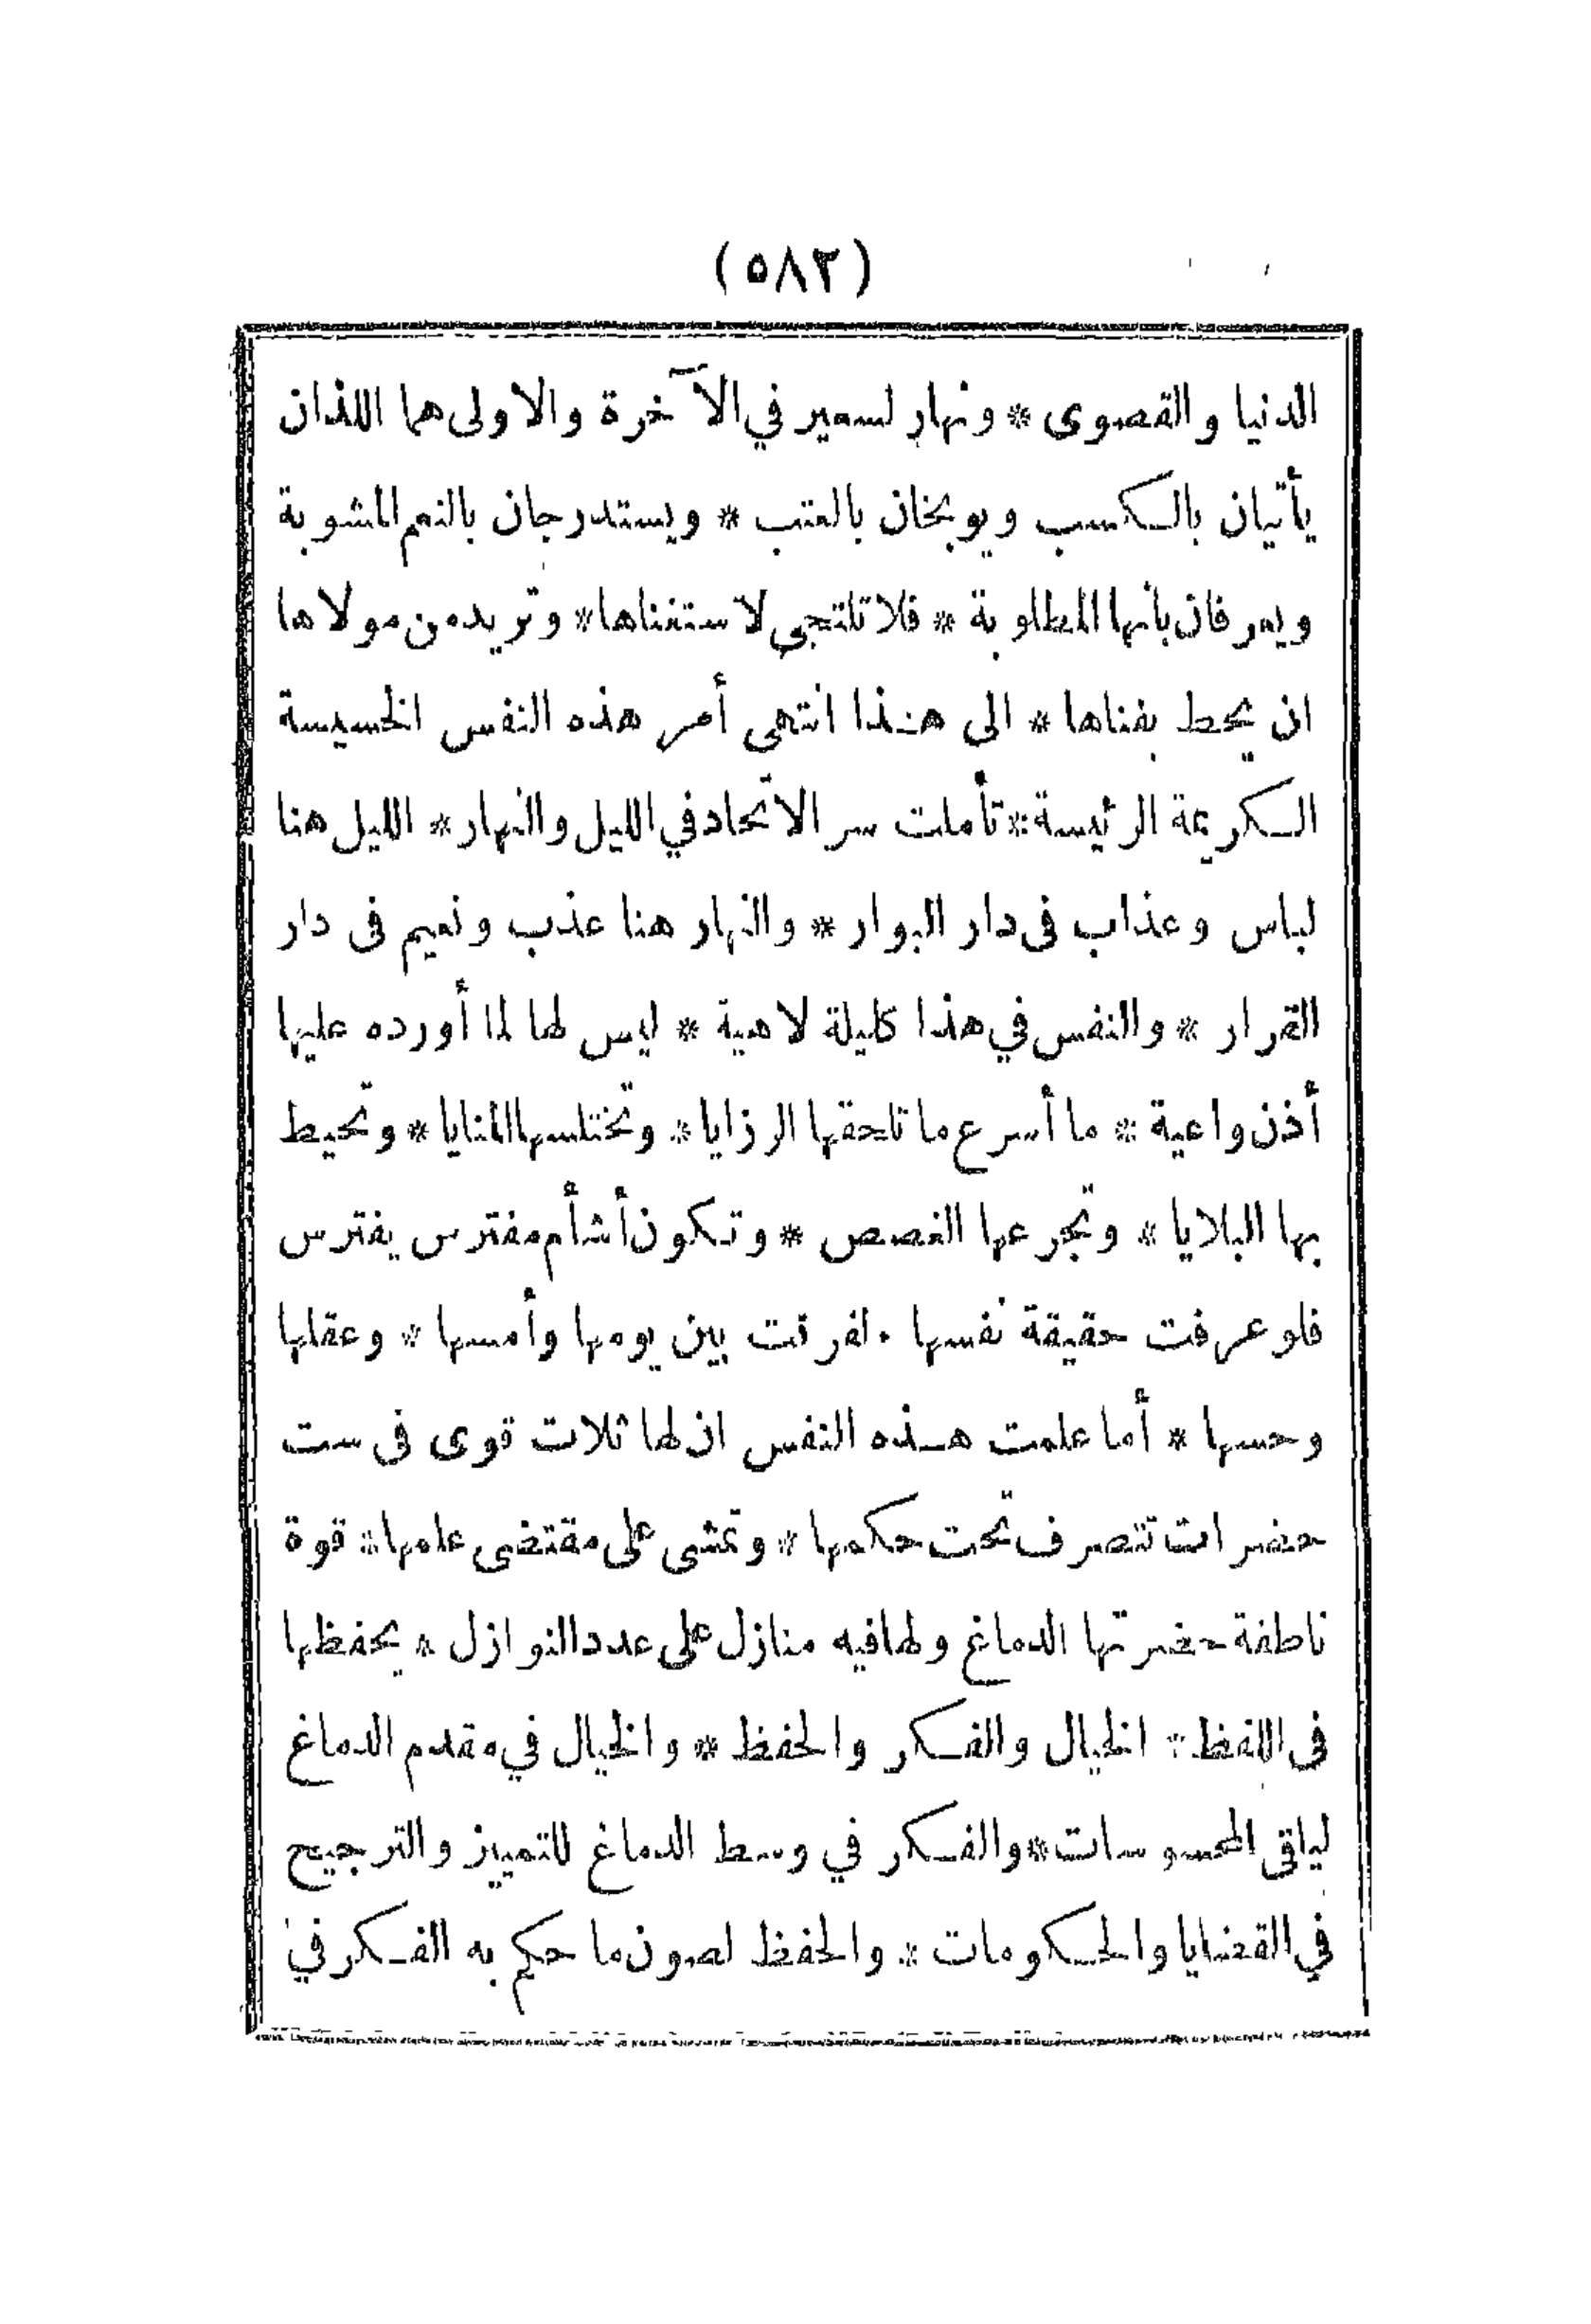 (٥٨٣)
الدنيا والقصوى * ونهار لسمير في الآخرة والاولى هما اللذان
يأتيان بالكسب ويوبخان بالعتب * ويستدرجان بالنعم المشوبة
ويعرفان بأنها المطلوبة * فلا تلتجى لاستغناها * وتريد من مولاها
ان يحط بفناها * الى هذا انتهى أمر هذه النفس الخسيسة
الكريمة الرئيسة * تأملت سر الاتحاد في الليل والنهار * الليل هنا
لباس وعذاب فى دار البوار * والنهار هنا عذب ونعيم فى دار
القرار * والنفس في هذا كليلة لاهية * ليس لها لما أورده عليها
أذن واعية * ما أسرع ما تلحقها الرزايا * وتختلسها المنايا * وتحيط
بها البلايا * وتجرعها الغصص * وتكون أشأم مفترس يفترس
فلو عرفت حقيقة نفسها * لفرقت بين يومها وأمسها * وعقلها
وحسها * أما علمت هذه النفس ان لها ثلاث قوى فى ست
حضرات تتصرف تحت حكمها * وتمشى على مقتضى علمها * قوة
ناطقة حضرتها الدماغ ولها فيه منازل على عدد النوازل * يحفظها
فى اللفظ * الخيال والفكر والحفظ * والخيال في مقدم الدماغ
ليلقى المحسوسات * والفكر في وسط الدماغ للتمييز والترجيح
في القضايا والحكومات * والحفظ لصون ما حكم به الفكر في